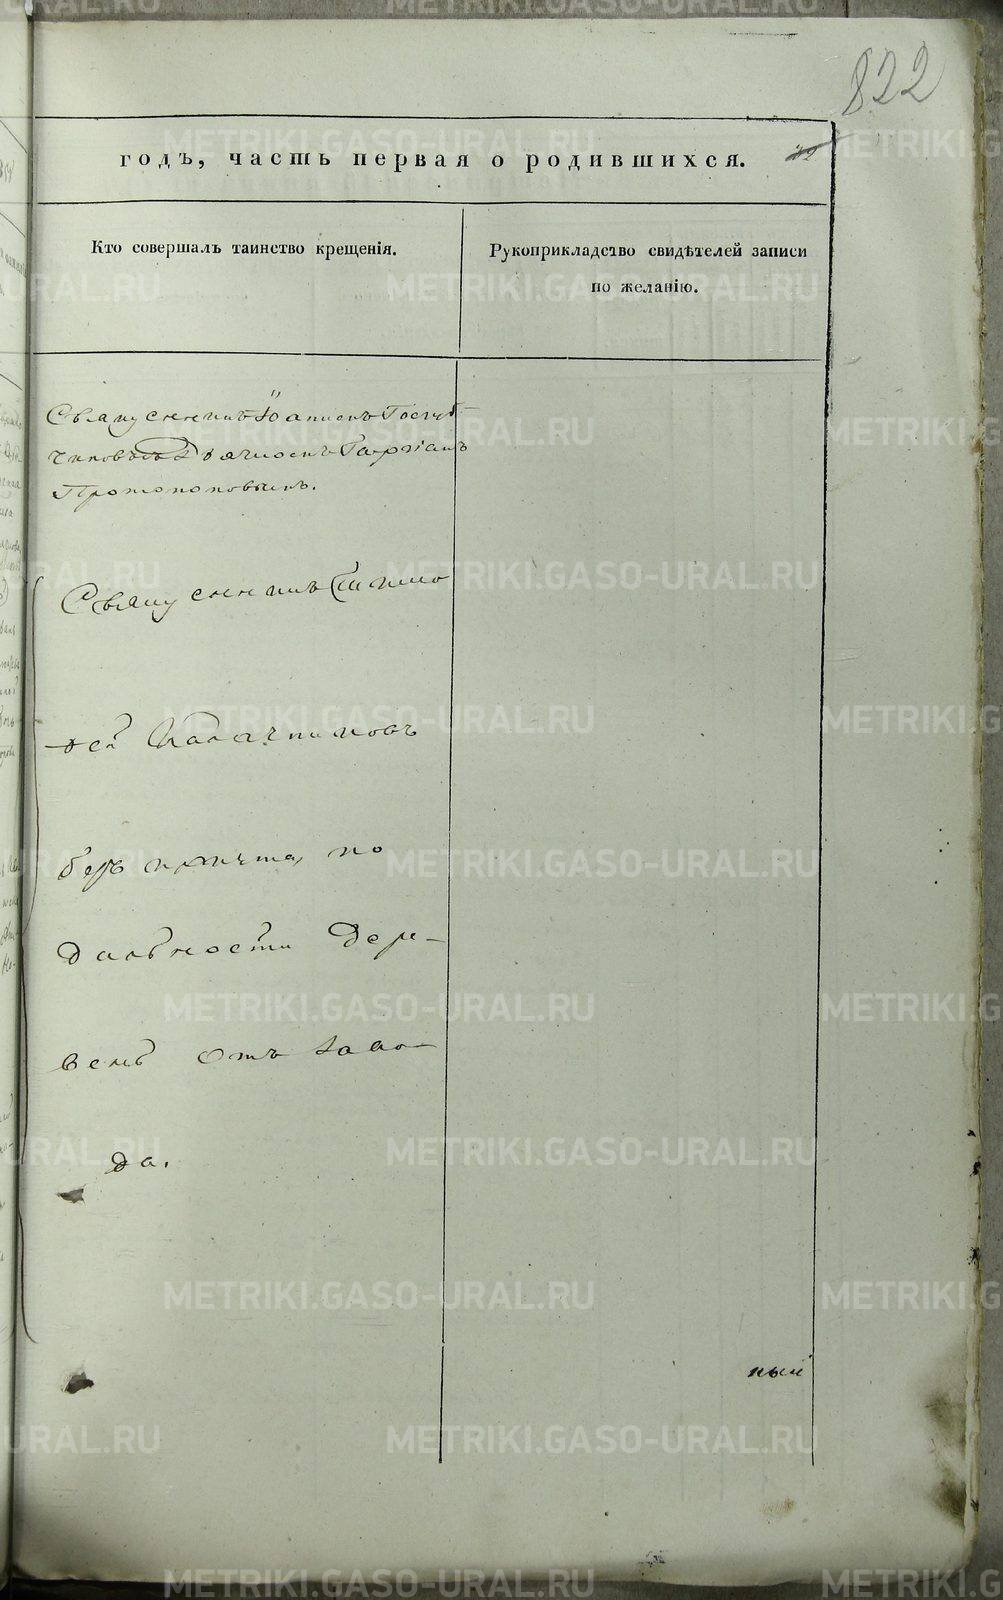 822
годъ, часть первая о родившихся.
Кто совершалъ таинство крещенія.
Рукоприкладство свидѣтелей записи
по желанію.
Священникъ Іоаннъ
чиковъ съ Діакономъ
Протопоповымъ.
Священникъ Тимо
фей Калачниковъ
безъ причта, по
дальности дере-
вень отъ заво-
да.
ный
METRIKI.GASO-URAL.RU